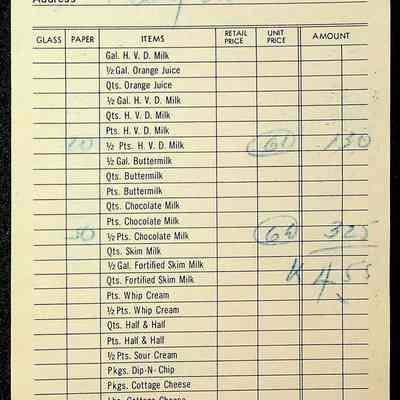 Address
GLASS PAPER ITEMS RETAIL PRICE UNIT PRICE AMOUNT
Gal. H. V. D. Milk
½ Gal. Orange Juice
Qts. Orange Juice
½ Gal. H. V. D. Milk
Qts. H. V. D. Milk
Pts. H. V. D. Milk
20 ½ Pts. H. V. D. Milk 6½ 130
½ Gal. Buttermilk
Qts. Buttermilk
Pts. Buttermilk
Qts. Chocolate Milk
Pts. Chocolate Milk
50 ½ Pts. Chocolate Milk 6½ 325
Qts. Skim Milk
½ Gal. Fortified Skim Milk 455
Qts. Fortified Skim Milk
Pts. Whip Cream
½ Pts. Whip Cream
Qts. Half & Half
Pts. Half & Half
½ Pts. Sour Cream
Pkgs. Dip-N-Chip
Pkgs. Cottage Cheese
Lbs. Cottage Cheese